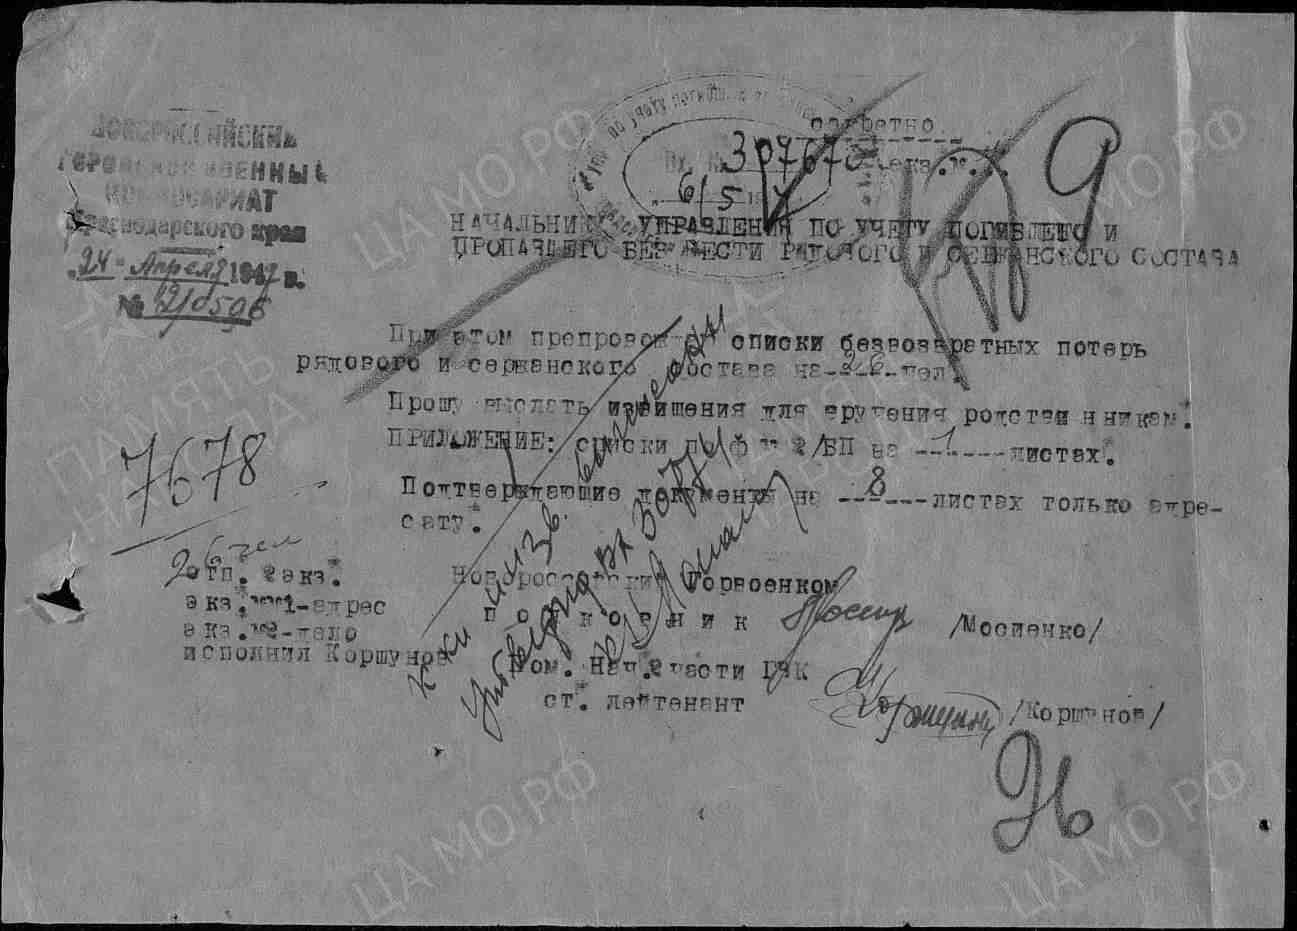 НОВОРОССИЙСКИЙ
ГОРОДСКОЙ ВОЕННЫЙ
КОМИССАРИАТ
Краснодарского края
"24" Апреля 1947 г.
№ 2/0596
по учету погибш
секретно.
Вх. № 307670 экз. №
6/5
9
НАЧАЛЬНИКУ УПРАВЛЕНИЯ ПО УЧЕТУ ПОГИБШЕГО И
ПРОПАВШЕГО БЕЗ ВЕСТИ РЯДОВОГО И СЕРЖАНСКОГО СОСТАВА
При этом препровождаю списки безвозвратных потерь
рядового и сержанского состава на-26-чел.
Прошу выслать извищения для вручения родственникам.
ПРИЛОЖЕНИЕ: списки по ф № 2/БП на --1---листах.
Подтверждающие документы на ---8---листах только адре-
сату.
7678
26 чел
отп. 2 экз.
экз. №1-адрес
экз. №2-дело
исполнил Коршунов
Новороссийский Горвоенком
п о л к о в н и к /Мосиенко/
Пом. Нач. 2 части ГВК
ст. лейтенант /Коршунов/
ЦА МО РФ
ЦА МО РФ
ПАМЯТЬ
НАРОДА
ЦА МО РФ
ЦА МО РФ